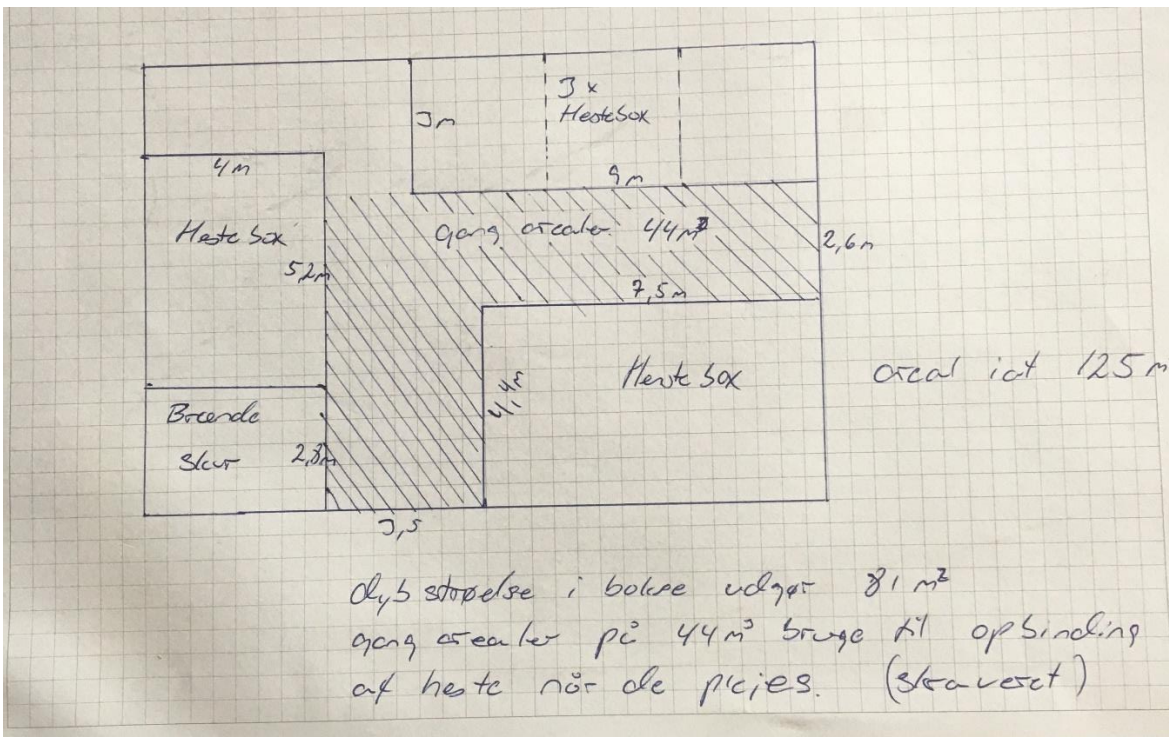 3 x
Hestebox
3m
4 m
9 m
Hestebox
gang arealer 44m²
2,6m
5,2m
7,5m
Hestebox
areal ialt 125 m
4,4m
Brænde
skur
2,8m
3,5
dybstrøelse i bokse udgør 81 m²
gang arealer på 44 m² bruge til opbinding
af heste når de plejes. (skraveret)